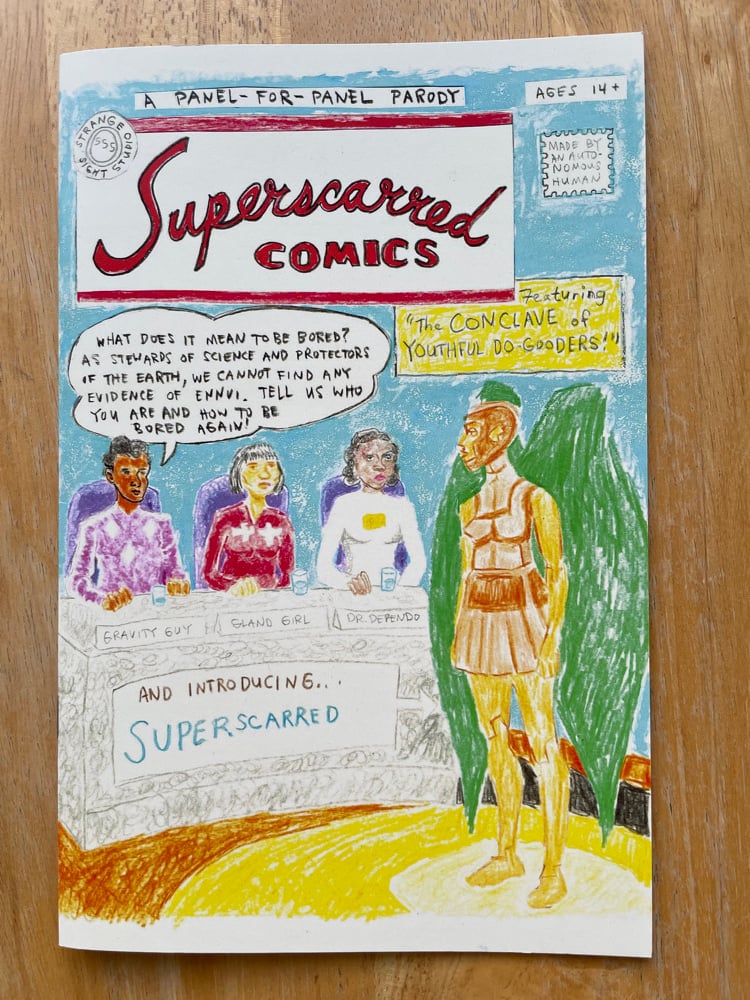 A PANEL-FOR-PANEL PARODY
AGES 14+
STRANGE O SIGHT STUDIO
SSS
MADE BY
AN AUTO-
NOMOUS
HUMAN
Superscarred
COMICS
Featuring
"The CONCLAVE of
YOUTHFUL DO-GOODERS!"
WHAT DOES IT MEAN TO BE BORED?
AS STEWARDS OF SCIENCE AND PROTECTORS
OF THE EARTH, WE CANNOT FIND ANY
EVIDENCE OF ENNUI. TELL US WHO
YOU ARE AND HOW TO BE
BORED AGAIN!
GRAVITY GUY
GLAND GIRL
DR. DEPENDO
AND INTRODUCING...
SUPERSCARRED